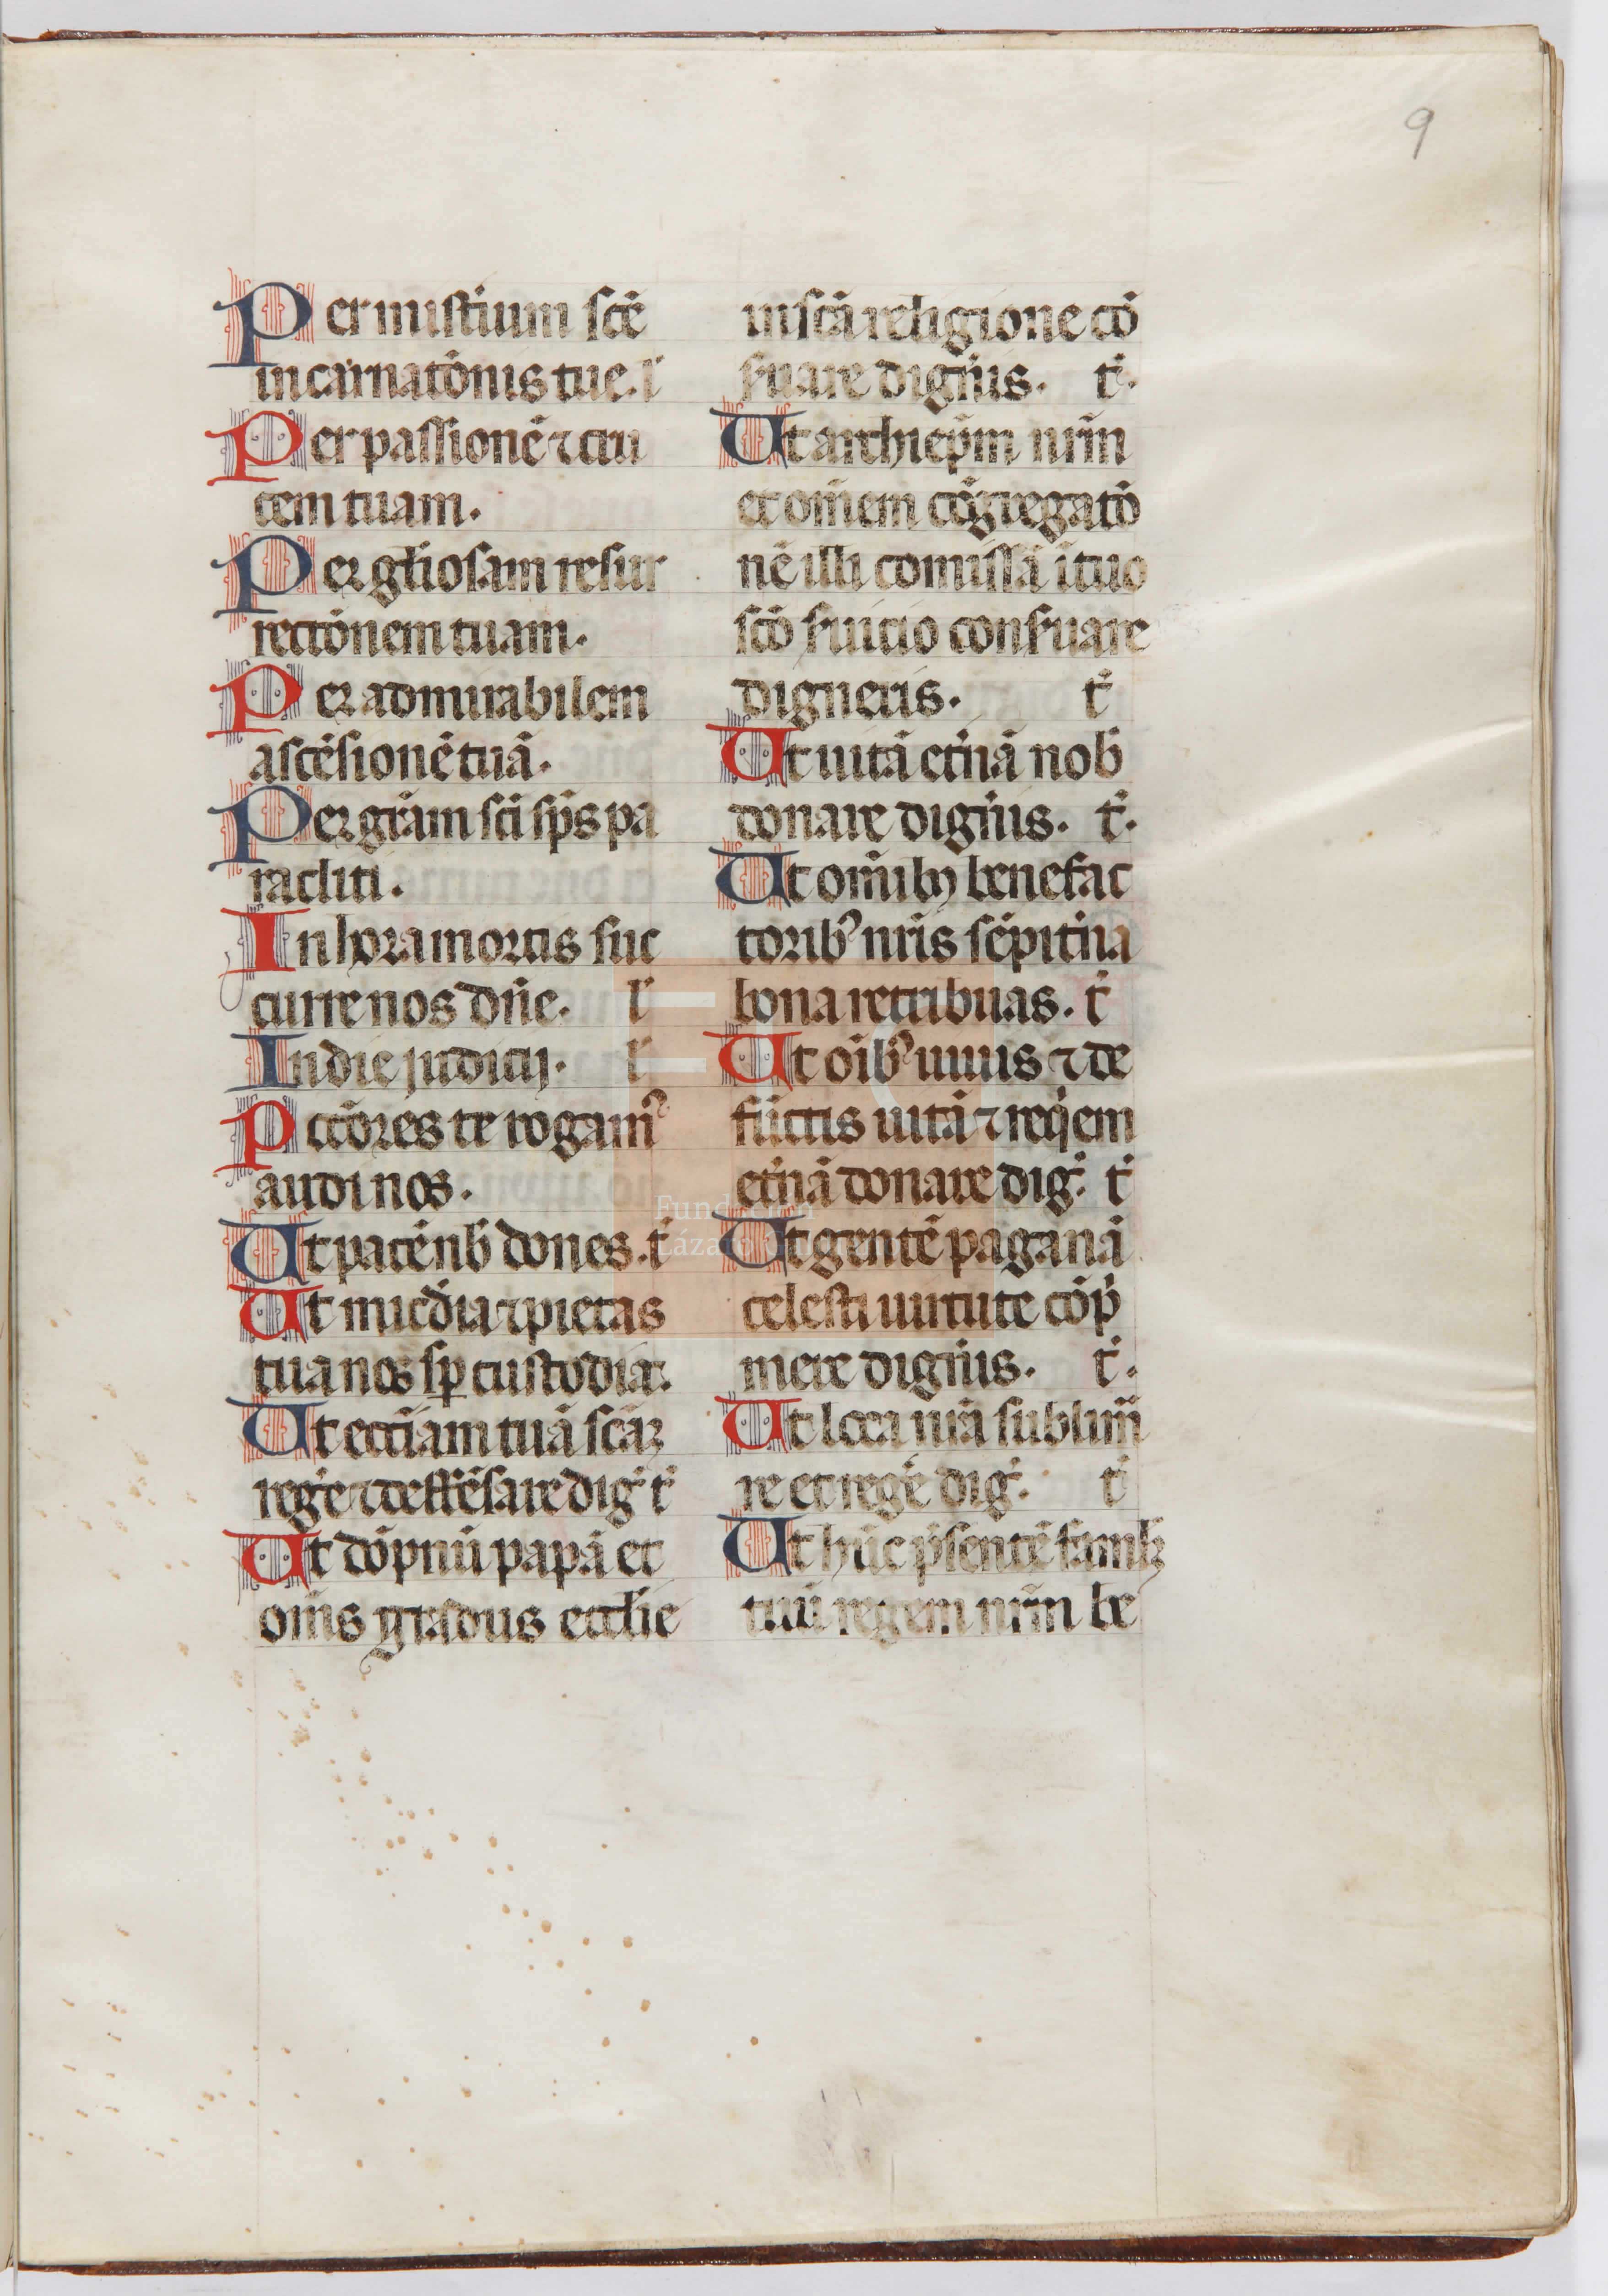 9
Per mistíum scē
incarnatōnis tue. l'
Per passionē ⁊ cru
cem tuam.
Per gl̄iosam resur
rectōnem tuam.
Per admirabilem
ascēsionē tuā.
Per gr̄am sc̄i sp̄s pa
racliti.
In hora mortis suc
curre nos dn̄e. l'
In die judicij. l'
Pctōres te rogam᾿
audi nos.
Ut pacē nb̄ dones. t'
Ut mīcdīa ⁊ pietas
tua nos sp̄ custodiat.
Ut eccīam tuā scāȝ
reg̾e ⁊ deffēsare dig̾ t'
Ut dōpnū papā et
om̄s gradus eccl̄ie
in sc̄a religione cō
s̾uare dign̾is. t'.
Ut archiep̄m nr̄m
et om̄em cōgregatō
nē illi comissā ī tuo
sc̄o s̾uicio cons̾uare
digneris. t'
Ut uitā et̾nā nob̄
donare dign̾is. t'.
Ut om̄ibȝ benefac
torib᾿ nr̄is sēpit̾na
bona retribuas. t'
Ut oīb᾿ uiuis ⁊ de
fūctis uitā ⁊ req̄em
et̾nā donare dig̾. t'
Ut gentē paganā
celesti uirtute cōp̄
mere dign̾is. t'.
Ut loca nr̄a sublim̄
re et reg̾e dig̾. t'
Ut hūc p̄sentē famlȝ
tuū regem nr̄m be
Fundación
Lázaro